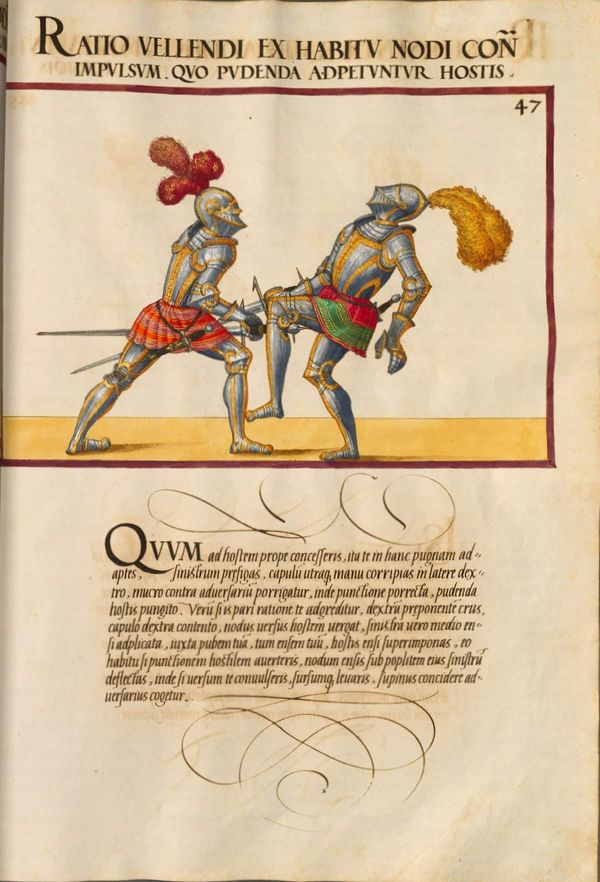 RATIO VELLENDI EX HABITV NODI COÑ
IMPVLSVM. QVO PVDENDA ADPETVNTVR HOSTIS.
47
QVVM ad hostem prope concesseris, ita te in hanc pugnam ad=
aptes, sinistrum prefigas, capulū utraq, manu corripias in latere dex=
tro, mucro contra adversariū porrigatur, inde punctione porrecta, pudenda
hostis pungito. Verū si is pari ratione te adgreditur, dextrū preponente crus,
capulo dextra contento, nodus uersus hostem uergat, sinistra uero medio en=
si adplicata, iuxta pubem tuā, tum ensem tuū, hostis ensi superimponas, eo
habitu si punctionem hostilem auerteris, nodum ensis sub poplitem eius sinistrū
deflectas, inde si uersum te conuulseris, sursumq, leuaris, supinus concidere ad=
uersarius cogetur.